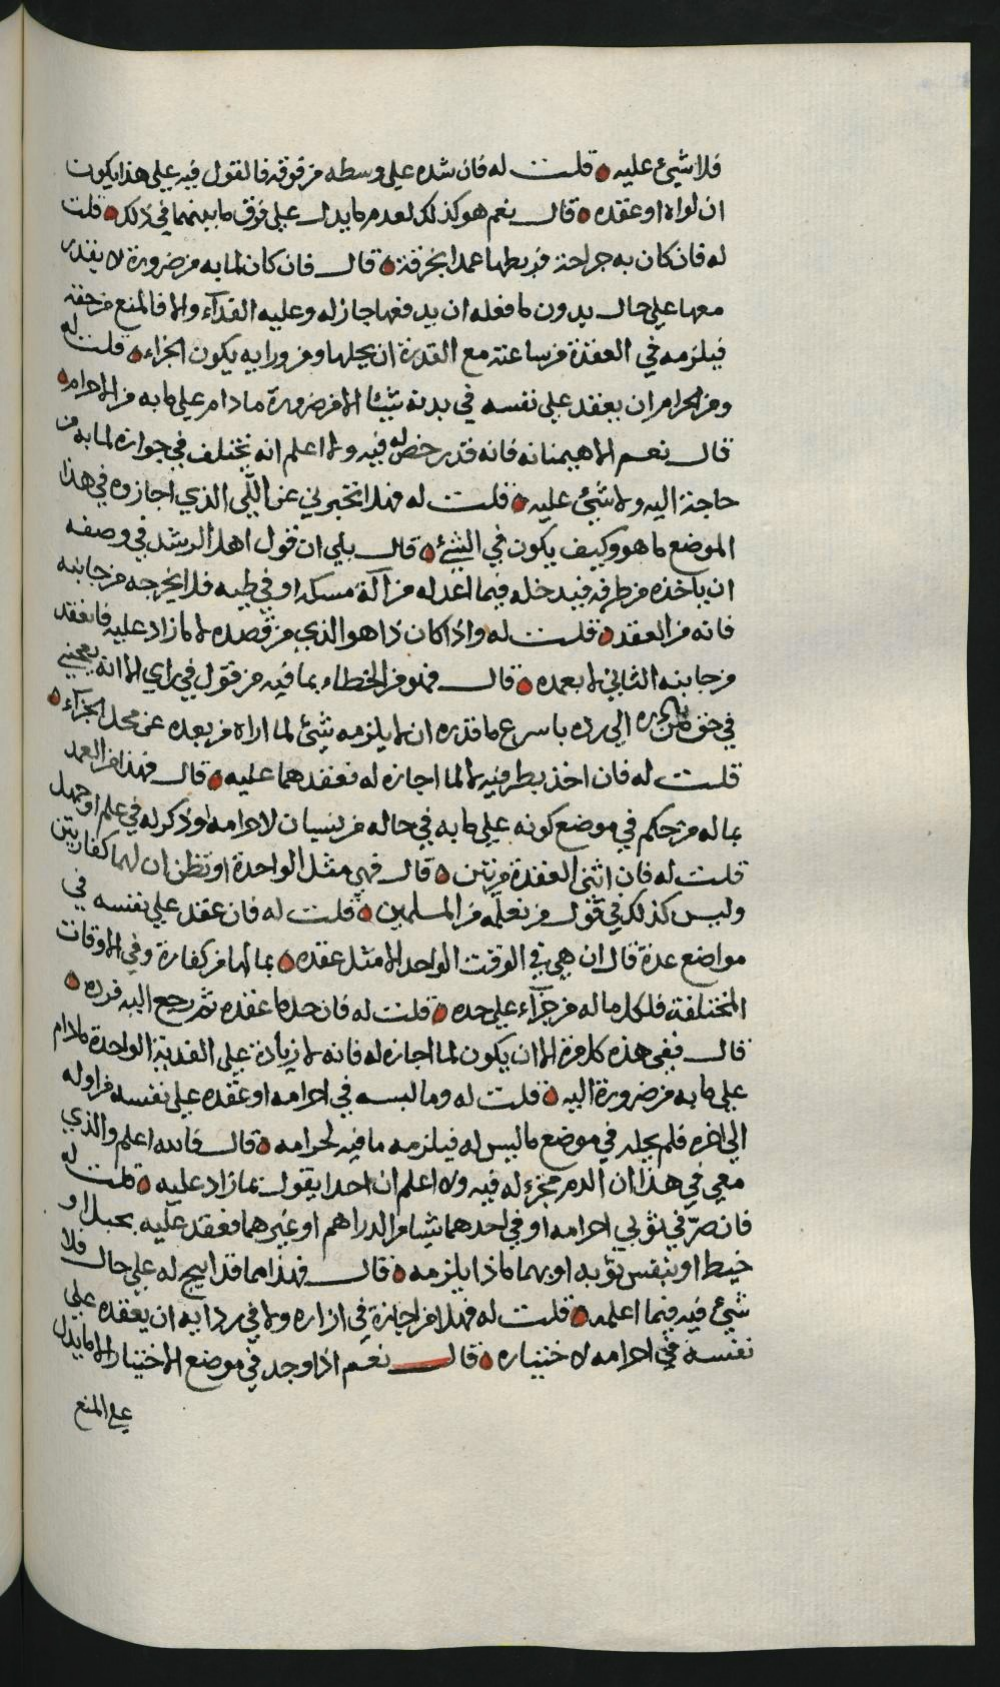 فلا شيئ عليه قلت له فان شده على وسطه من فوقه فالقول فيه على هذا يكون
ان لواه او عقده قال نعم هو كذلك لعدم ما يدل على فرق ما بينهما في ذلك قلت
له فان كان به جراحة فربطها عمدا بخرقة قال فان كان لما به من ضرورة لا يقدر
معها على حال بدون ما فعله ان يدفعها جاز له وعليه الفدآء والا فالمنع من حقه
فيلزمه في العقدة من ساعته مع القدرة ان يحلها ومن ورايه يكون الجزاء قلت له
ومن الحرام ان يعقد على نفسه في بدنه شيئا الا من ضرورة ما دام على ما به من الاحرام
قال نعم الا هيمانه فانه قد رخص له فيه ولا اعلم انه يختلف في جوازه لما به من
حاجة اليه ولا شيئ عليه قلت له فهلا تخبرني عن اللّي الذي اجازوه في هذا
الموضع ما هو وكيف يكون في الشيئ قال بلى ان قول اهل الرشد في وصفه
ان ياخذه من طرفه فيدخله فيما اعد له من آلة مسكه او في طيه فلا يخرجه من جانبه
فانه من العقد قلت له واذا كان ذا هو الذي من قصده لا ما زاد عليه فانعقد
من جانبه الثاني لا بعمده قال فهو من الخطاء بما فيه من قول في راي الا انه يعجبني
في حق من رده الى رده باسرع ما قدره ان لا يلزمه شيئ لما اراه من بعده عن محل الجزآء
قلت له فان اخذ بطرفيه لا لما اجازه له فعقدهما عليه قال فهذا من العمد
بما له من حكم في موضع كونه على ما به في حاله من نسيان لاحرامه او ذكر له في علم او جهل
قلت له فان اثنى العقدة مرتين قال فهي مثل الواحدة او تظن ان لهما كفارتين
وليس كذلك في قول من نعلمه من المسلمين قلت له فان عقد على نفسه في
مواضع عدة قال ان هي في الوقت الواحد الا مثل عقده بما لها من كفارة وفي الاوقات
المختلفة فلكل ما له من جزآء على حده قلت له فان حل ما عقده ثم رجع اليه فرده
قال ففي هذه كل مرة الا ان يكون لما اجازه له فانه لا زيادة على الفدية الواحدة ما دام
على ما به من ضرورة اليه قلت له وما لبسه في احرامه او عقده على نفسه من اوله
الى اخره فلم يحله في موضع ما ليس له فيلزمه ما فيه لحرامه قال فالله اعلم والذي
معي في هذا ان الدم مجزء له فيه ولا اعلم ان احدا يقول بما زاد عليه قلت له
فان صرّ في ثوبي احرامه او في احدهما شيئا من الدراهم او غيرهما فعقد عليه بحبل او
خيط او بنفس ثوبه او بهما ماذا يلزمه قال فهذا مما قد ابيح له على حال فلا
شيئ فيه فيما اعلمه قلت له فهلا من اجازة في ازاره ولا في ردايه ان يعقده على
نفسه في احرامه لاختياره قال نعم اذا وجد في موضع الاختيار الا ما يدل
على المنع